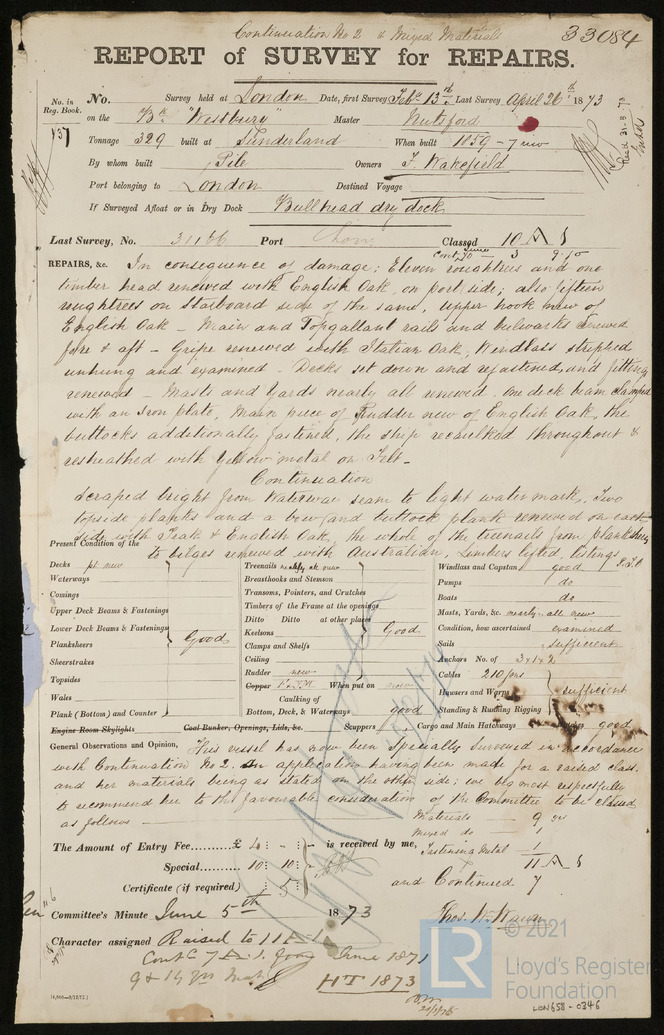 Continuation No 2 & Mixed Materials
33084
REPORT of SURVEY for REPAIRS.
No. in Reg. Book.
137
No. Survey held at London Date, first Survey Feby 13th Last Survey April 26th 1873
on the Bk "Westbury" Master
Tonnage 329 built at Sunderland When built 1859 - 7
By whom built Pile Owners T. Wakefield
Port belonging to London Destined Voyage
If Surveyed Afloat or in Dry Dock Bullhead dry dock
Last Survey, No. 31166 Port Lon Classed 10 A 1
REPAIRS, &c. In consequence of damage; Eleven roughtrees and one
timber head renewed with English Oak, on port side; also fifteen
roughtrees on starboard side of the same, upper hook new of
English Oak - Main and Topgallant rail and bulwarks renewed
fore & aft - Gripe renewed with Italian Oak, Windlass stripped
unhung and examined - Decks set down and refastened, and fitting
renewed - Masts and Yards nearly all renewed. One deck beam clamped
with an Iron plate, Main piece of Rudder new of English Oak, the
buttocks additionally fastened, the ship recaulked throughout &
resheathed with Yellow metal on Felt -
Continuation
Scraped bright from Waterway seam to light water mark, Two
topside planks and a bow and buttock plank renewed on each
side with Teak & English Oak, the whole of the treenails from planksheer
to bilges renewed with Australian, limbers lifted, listings
Present Condition of the
Decks pt new
Waterways
Comings
Upper Deck Beams & Fastenings
Lower Deck Beams & Fastenings
Planksheers
Sheerstrakes
Topsides
Wales
Plank (Bottom) and Counter
Good
Engine Room Skylights
Coal Bunker, Openings, Lids, &c.
Treenails new
Breasthooks and Stemson
Transoms, Pointers, and Crutches
Timbers of the Frame at the openings
Ditto Ditto at other places
Keelsons
Clamps and Shelfs
Ceiling
Good
Rudder new
Copper When put on
Caulking of
Bottom, Deck, & Waterways good
Scuppers
Windlass and Capstan good
Pumps do
Boats do
Masts, Yards, &c. nearly all new
Condition, how ascertained examined
Sails sufficient
Anchors No. of 3 x 1 x 2
Cables 210 fms
Hawsers and Warps
Standing & Running Rigging
sufficient
Cargo and Main Hatchways good
General Observations and Opinion, This vessel has now been Specially Surveyed in accordance
with Continuation No 2. An application having been made for a raised class,
and her materials being as stated on the other side; we beg most respectfully
to recommend her to the favourable consideration of the Committee to be classed
as follows -
Materials 9 yrs
Mixed do 1
Fastening Metal 1
11 A 1
and Continued 7
The Amount of Entry Fee...........£ 4 : - : - is received by me,
Special........... 10 : 10 :
Certificate (if required) : 5 :
Committee's Minute June 5th 1873
Character assigned Raised to 11 A 1
June 1871
HT 1873
© 2021
LR
Lloyd's Register
Foundation
LON658-0346